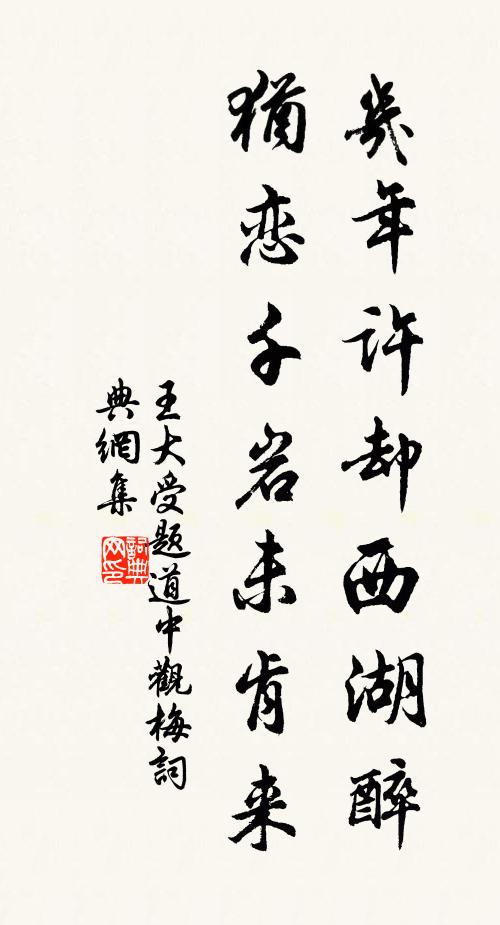 幾年許却西湖醉
猶恋千岩未肯来
王大受题道中觀梅詞
典網集
詞典
网印